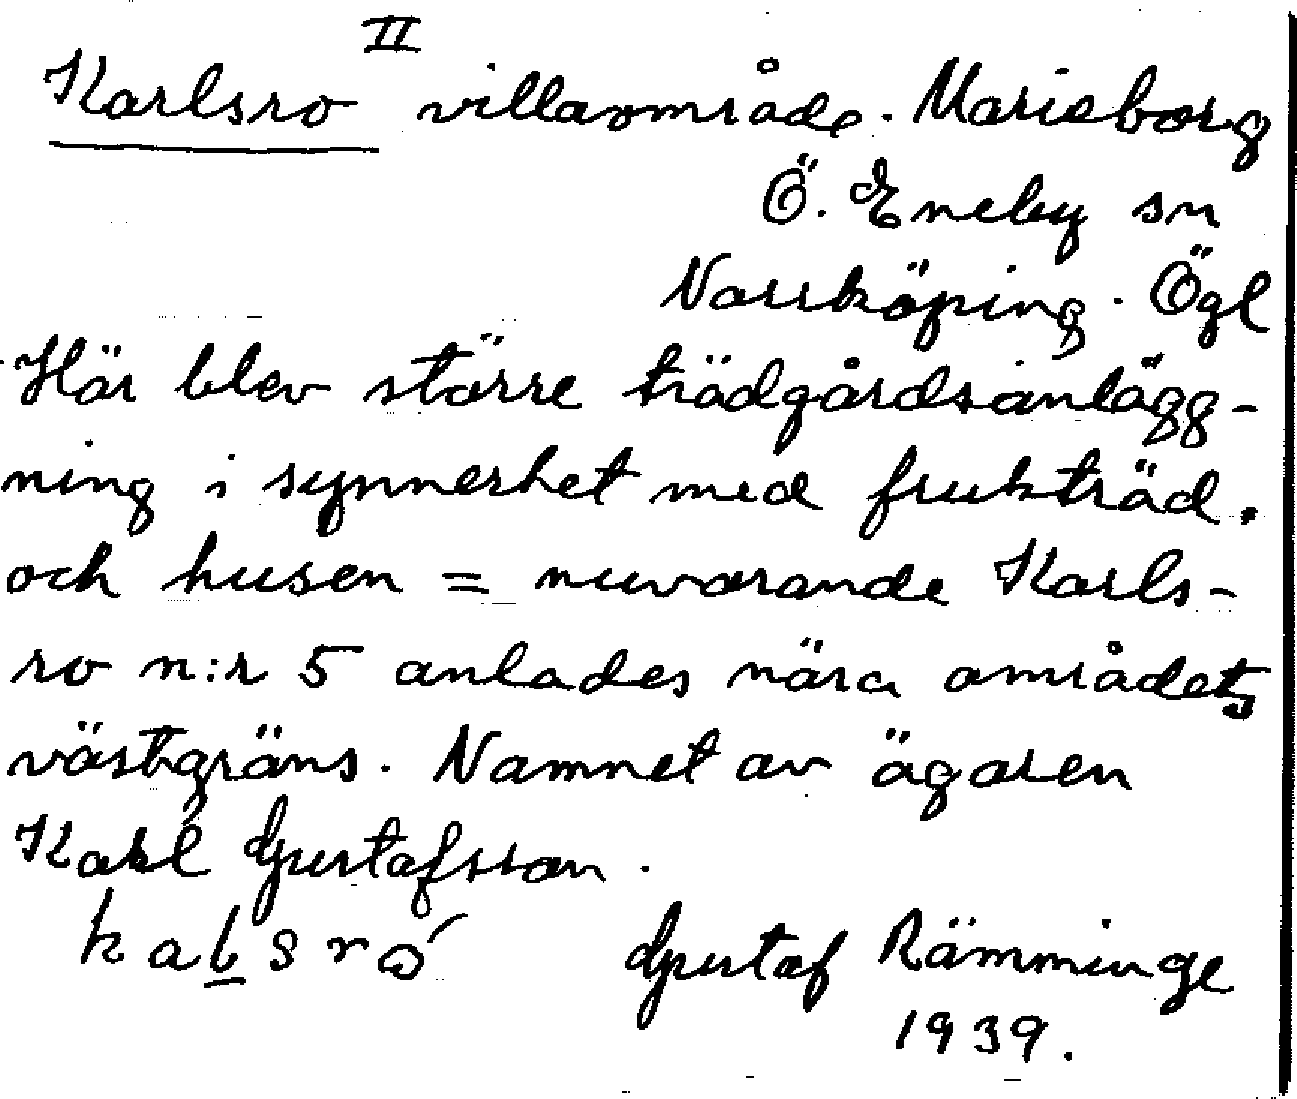 II
Karlsro villaområde. Marieborg
Ö. Eneby sn
Norrköping. Ögl
Här blev större trädgårdsanlägg-
ning i synnerhet med fruktträd.
och husen = nuvarande Karls-
ro n:r 5 anlades nära områdets
västgräns. Namnet av ägaren
Karl Gustafsson.
Gustaf Rämminge
1939.